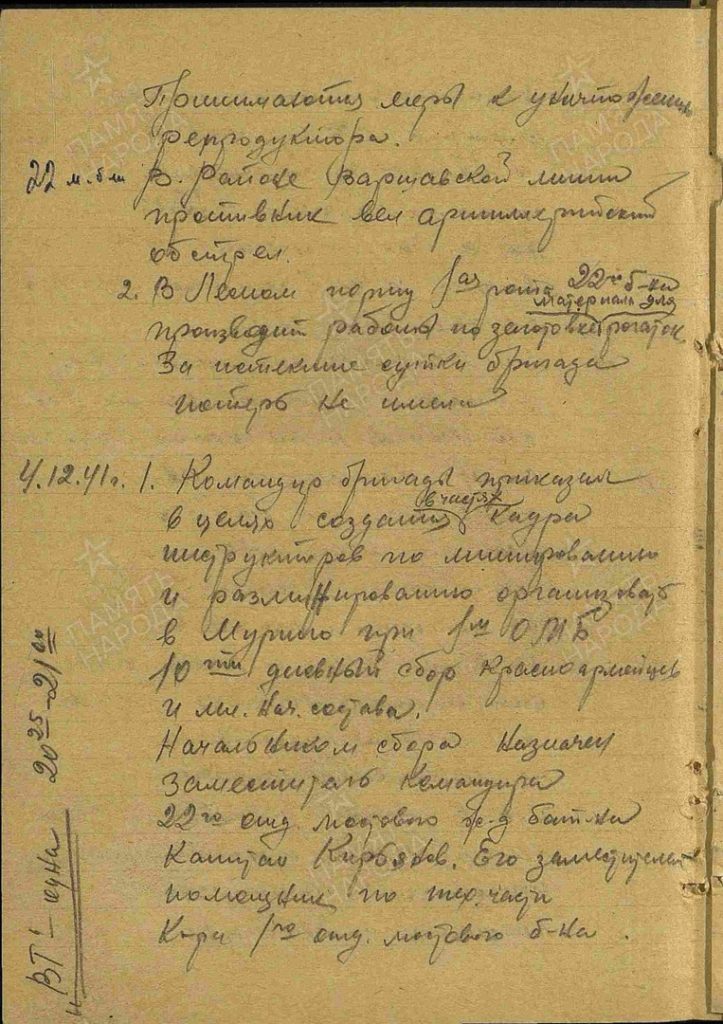 Принимаются меры к уничтожению
репродуктора.
22 м.б-н В. Районе Варшавской линии
противник вел артиллерийский
обстрел.
2. В Лесном порту 1ая рота 22го б-на
материала для
производит работы по заготовке рогаток
За истекшие сутки бригада
потерь не имела
4.12.41г. 1. Командир бригады приказал
в частях
в целях создания кадра
инструкторов по минированию
и разминированию организовать
в Мурино при 1м ОМБ
10ти дневный сбор красноармейцев
и мл. нач. состава.
Начальником сбора назначен
Заместитель Командира
22го отд. мостового ж-д бат-на
Капитан Его заместителем
помощник по тех. части
К-ра 1го отд. мостового б-на.
20 25 - 21 00
ПАМЯТЬ НАРОДА